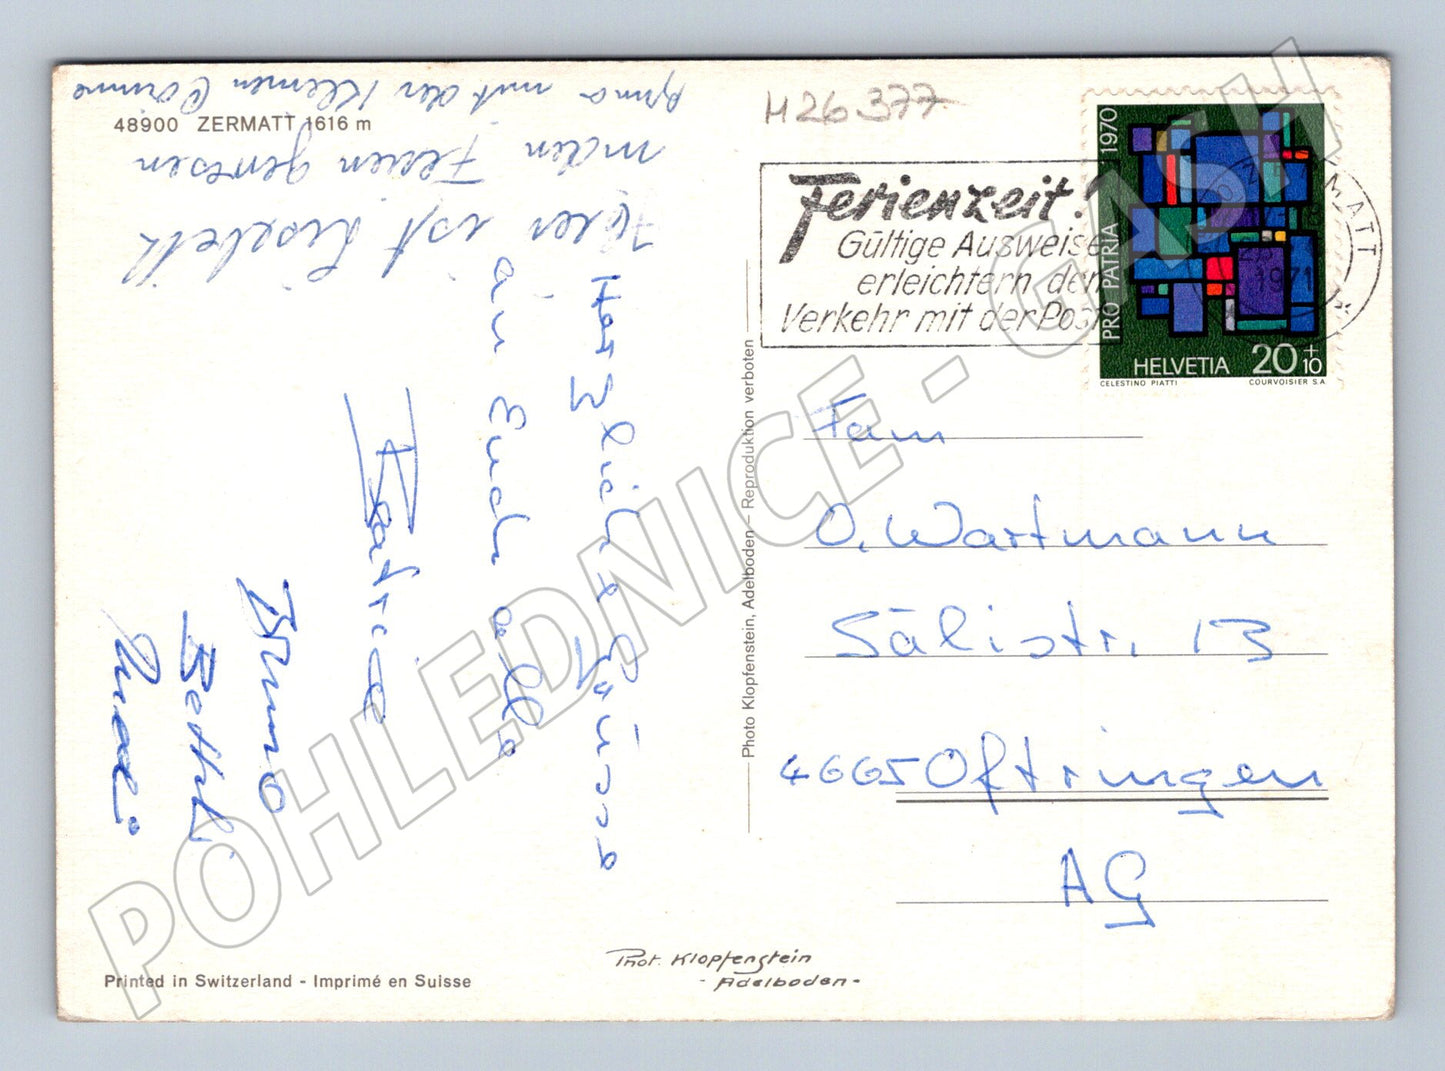 48900 ZERMATT 1616 m
Hier ist Lisbeth
in den Ferien gewesen
mit der kleinen
Herzliche Grüsse
an Euch alle
Beatrice
Bruno
Bethli
Ruedi
Printed in Switzerland - Imprimé en Suisse
Phot. Klopfenstein
- Adelboden -
Photo Klopfenstein, Adelboden – Reproduktion verboten
H26377
Ferienzeit!
Gültige Ausweise
erleichtern den
Verkehr mit der Post
ZERMATT
1971
PRO PATRIA 1970
HELVETIA 20+10
CELESTINO PIATTI COURVOISIER S.A.
Fam
O. Wartmann
Sälistr. 13
4665 Oftringen
AG
POHLEDNICE - GASH